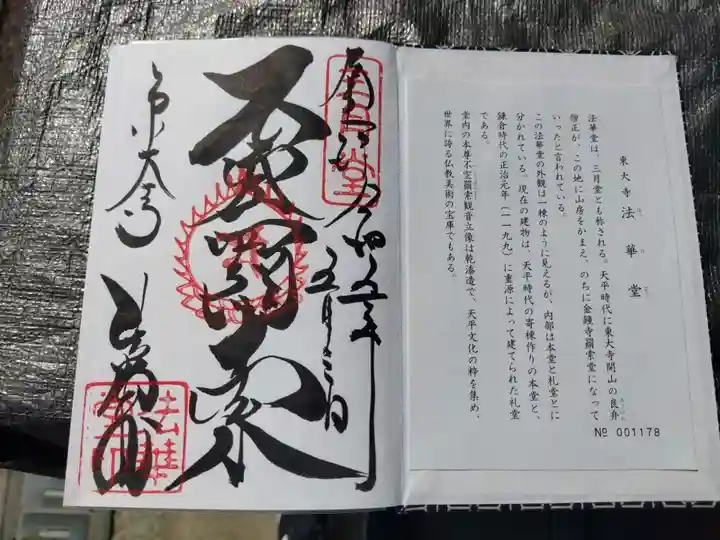 東大寺 法華堂
ほっ け どう
法華堂は、三月堂とも称される。天平時代に東大寺開山の良弁
ろうべん
僧正が、この地に山房をかまえ、のちに金鐘寺羂索堂になって
いったと言われている。
この法華堂の外観は一棟のように見えるが、内部は本堂と礼堂とに
分かれている。現在の建物は、天平時代の寄棟作りの本堂と、
鎌倉時代の正治元年(一一九九)に重源によって建てられた礼堂
である。
堂内の本尊不空羂索観音立像は乾漆造で、天平文化の粋を集め、
世界に誇る仏教美術の宝庫でもある。
№ 001178
奉拝 令和五年
五月三日
不空羂索
東大寺
法華堂